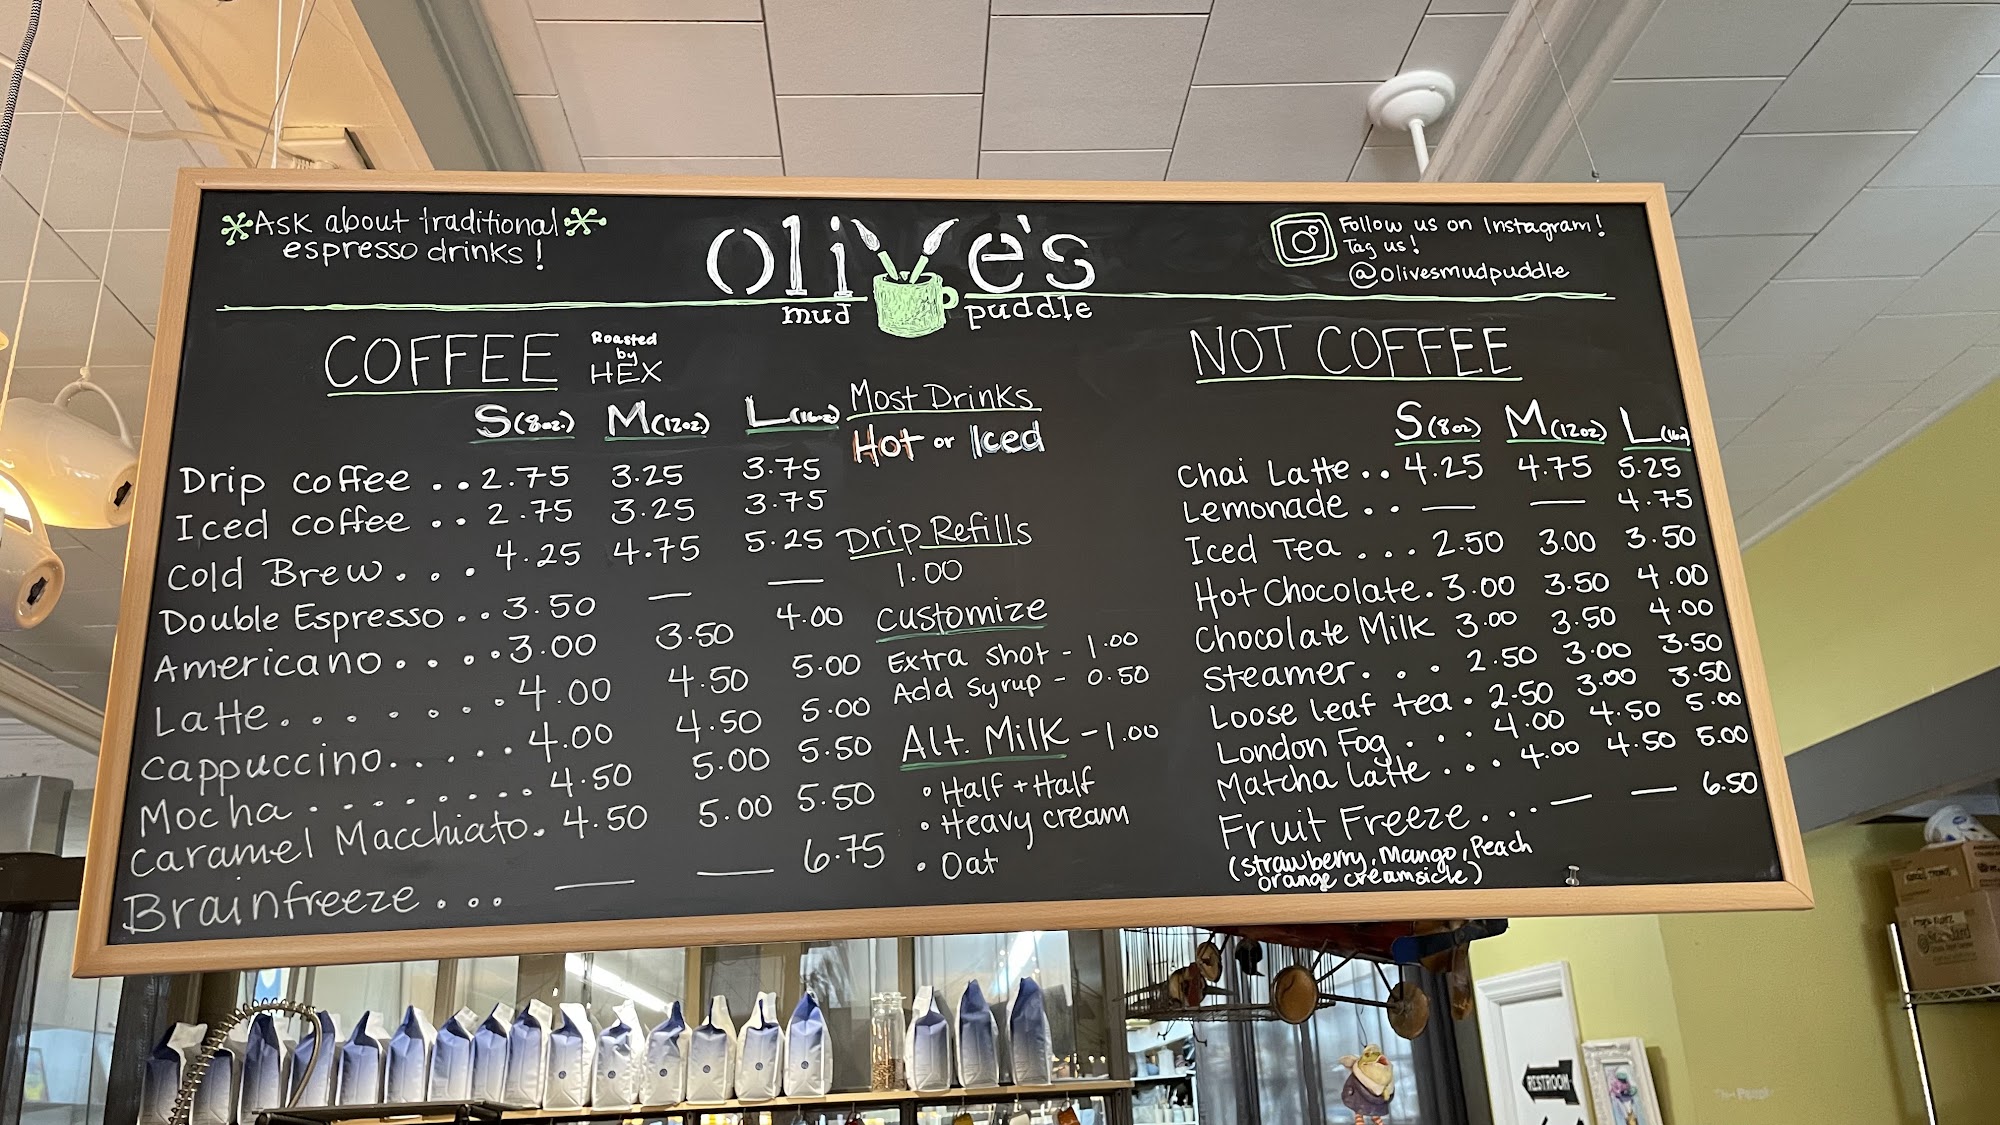 Ask about traditional
espresso drinks!
Olive's
mud puddle
Follow us on Instagram!
Tag us!
@olivesmudpuddle
COFFEE
Roasted
by
HEX
S (8oz.) M (12oz.) L (16oz)
Drip coffee .. 2.75 3.25 3.75
Iced coffee .. 2.75 3.25 3.75
Cold Brew... 4.25 4.75 5.25
Double Espresso.. 3.50 — —
Americano.... 3.00 3.50 4.00
Latte........ 4.00 4.50 5.00
Cappuccino..... 4.00 4.50 5.00
Mocha........ 4.50 5.00 5.50
Caramel Macchiato. 4.50 5.00 5.50
Brainfreeze... — — 6.75
Most Drinks
Hot or Iced
Drip Refills
1.00
Customize
Extra shot - 1.00
Add syrup - 0.50
Alt. Milk - 1.00
• Half + Half
• Heavy cream
• Oat
NOT COFFEE
S (8oz) M (12oz) L (16oz)
Chai Latte.. 4.25 4.75 5.25
Lemonade.. — — 4.75
Iced Tea ... 2.50 3.00 3.50
Hot Chocolate. 3.00 3.50 4.00
Chocolate Milk 3.00 3.50 4.00
Steamer... 2.50 3.00 3.50
Loose leaf tea. 2.50 3.00 3.50
London Fog... 4.00 4.50 5.00
Matcha Latte... 4.00 4.50 5.00
Fruit Freeze... — — 6.50
(strawberry, Mango, Peach
orange creamsicle)
RESTROOM